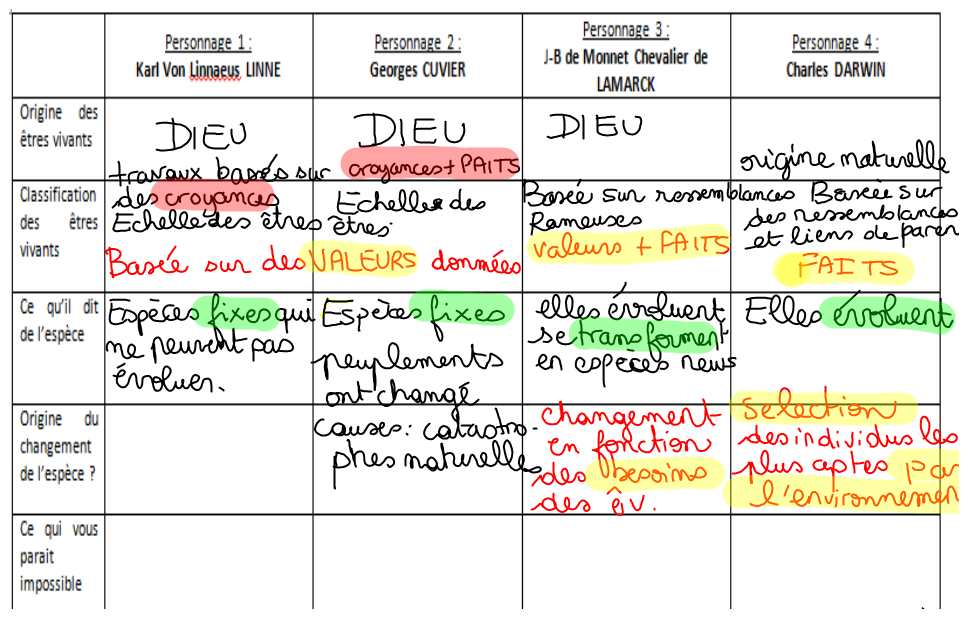 Personnage 1 :
Karl Von Linnaeus LINNE
Personnage 2 :
Georges CUVIER
Personnage 3 :
J-B de Monnet Chevalier de
LAMARCK
Personnage 4 :
Charles DARWIN
Origine des
êtres vivants
DIEU
travaux basés sur
des croyances
DIEU
croyances + FAITS
DIEU
origine naturelle
Classification
des êtres
vivants
Echelle des êtres
Echelle des
êtres
Basée sur des VALEURS données
Basée sur ressemblances
Rameuses
valeurs + FAITS
Basée sur
des ressemblances
et liens de paren
FAITS
Ce qu'il dit
de l'espèce
Espèces fixes qui
ne peuvent pas
évoluer.
Espèces fixes
peuplements
ont changé
elles évoluent
se transforment
en espèces news
Elles évoluent
Origine du
changement
de l'espèce ?
causes : catastro-
phes naturelles
changement
en fonction
des besoins
des êv.
selection
des individus les
plus aptes par
l'environnement
Ce qui vous
parait
impossible